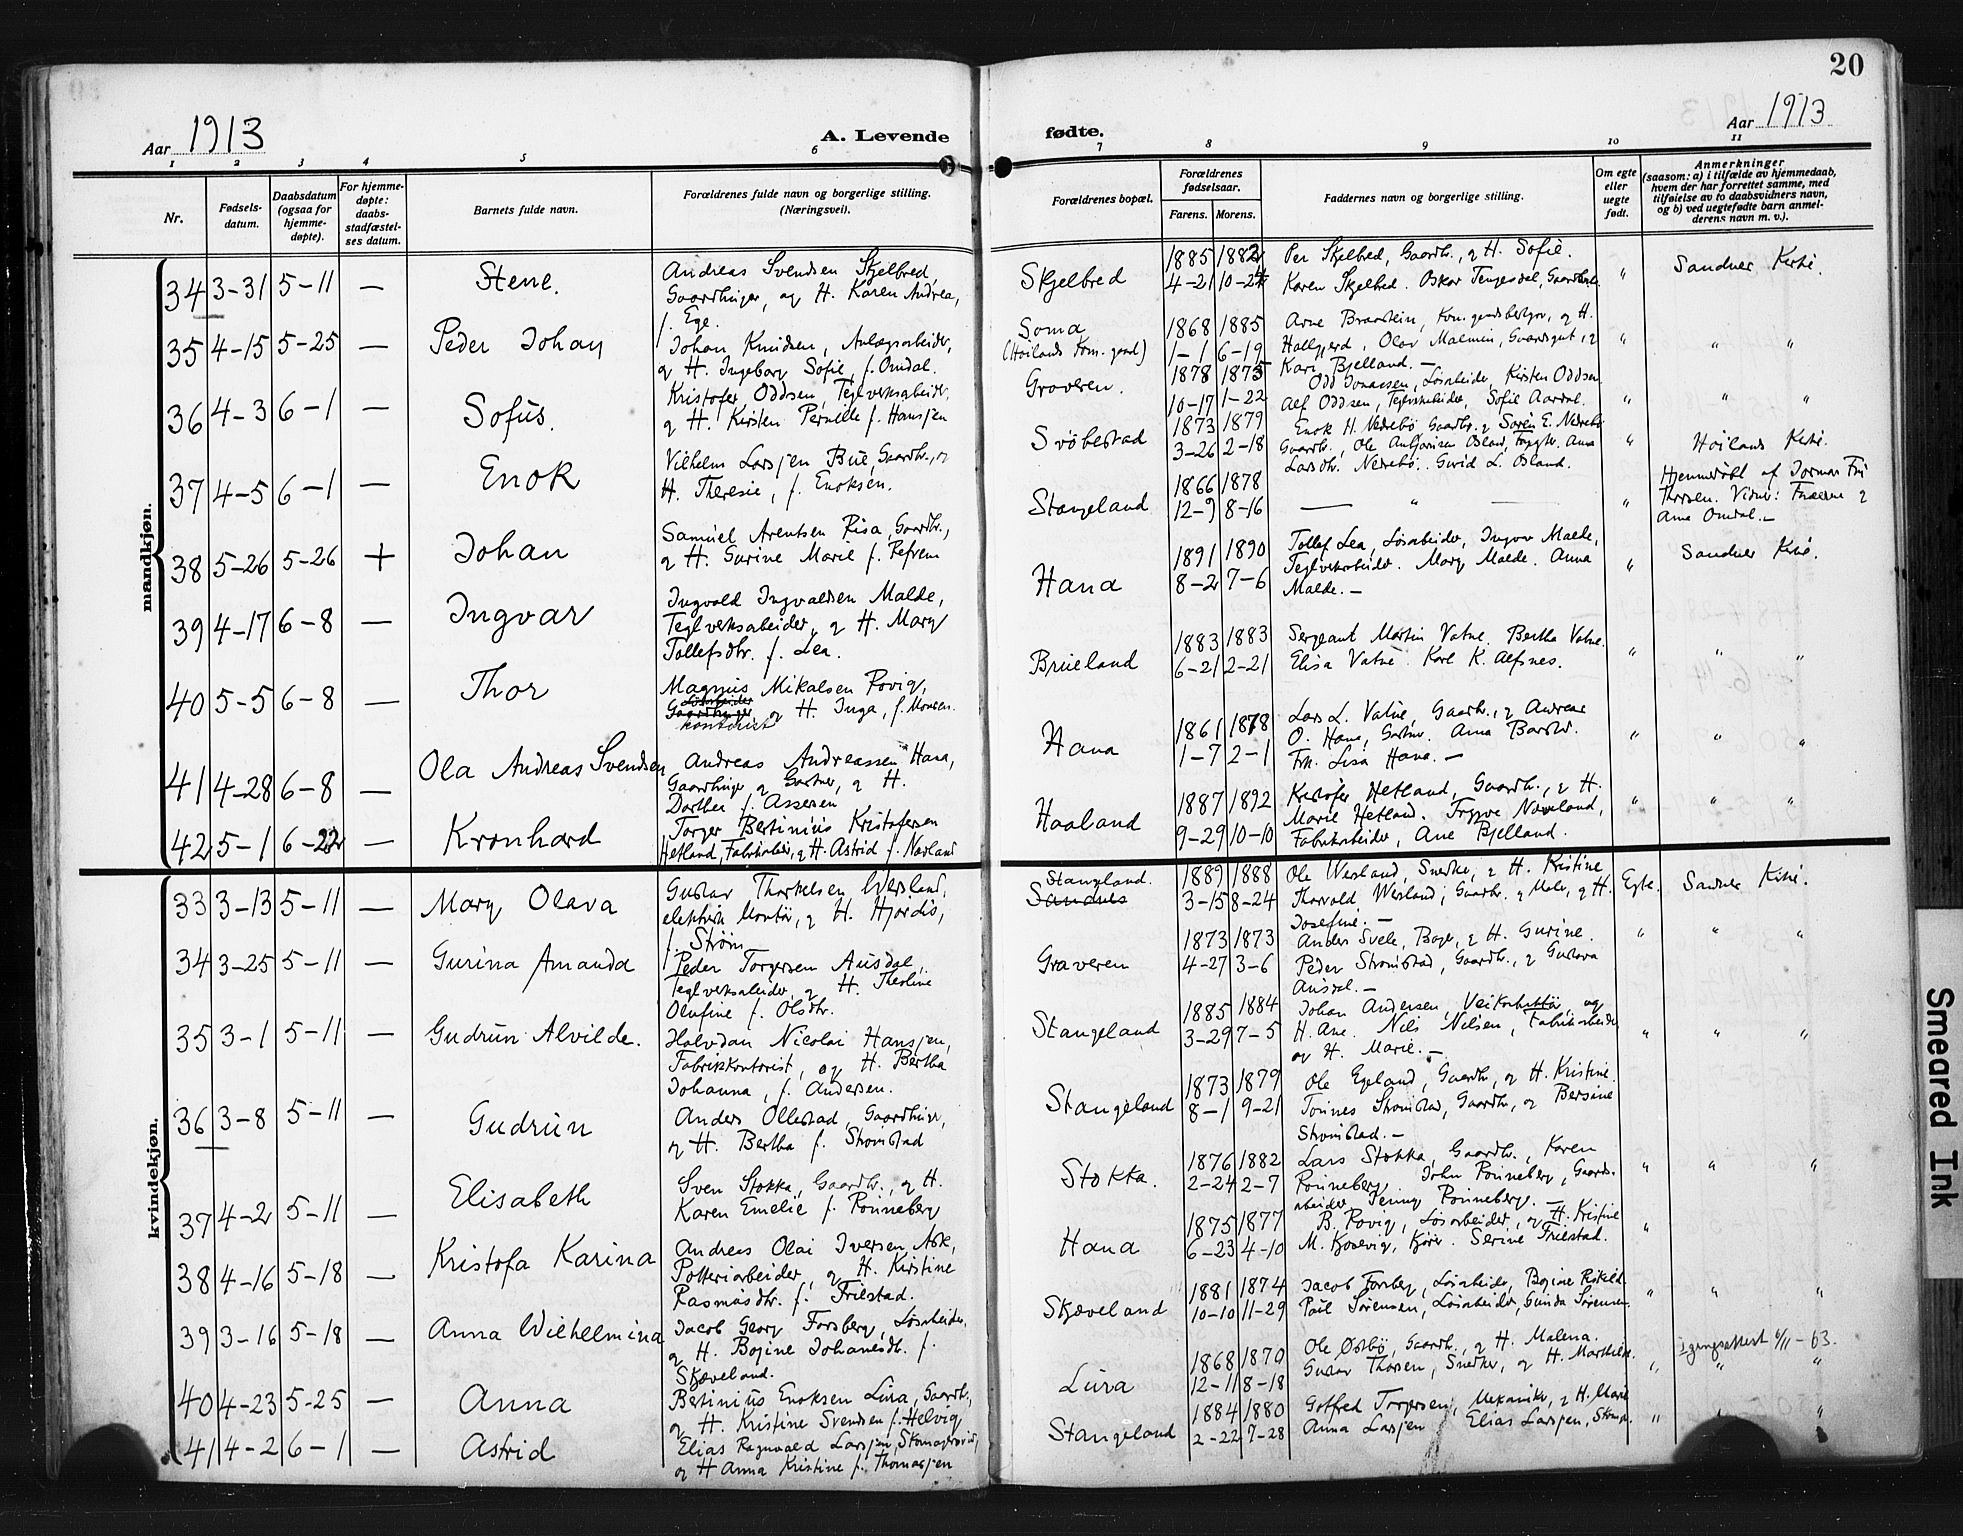 20
Aar 1913
A. Levende
fødte.
Aar 1913
1 2 3 4 5 6 7 8 9 10 11
Nr.
Fødsels-
datum.
Daabsdatum
(ogsaa for
hjemme-
døpte).
For hjemme-
døpte:
daabs-
stadfæstel-
ses datum.
Barnets fulde navn.
Forældrenes fulde navn og borgerlige stilling.
(Næringsvei).
Forældrenes bopæl.
Forældrenes
fødselsaar.
Farens. Morens.
Faddernes navn og borgerlige stilling.
Om egte
eller
uegte
født.
Anmerkninger
(saasom: a) i tilfælde av hjemmedaab,
hvem der har forrettet samme, med
tilføielse av to daabsvidners navn,
og b) ved uegtefødte barn anmel-
derens navn m. v.).
mandkjøn.
34 3-31 5-11 — Stene.
Andreas Svendsen Skjelbred,
Gaardbruger, og H. Karen Andrea,
f. Ege.
Skjelbred
1885 1882
4-21 10-24
Per Skjelbred, Gaardbr., og H. Sofie.
Karen Skjelbred. Oskar Tengesdal, Gaardbruk.
"
Sandnes Kirke.
35 4-15 5-25 — Peder Johan
Johan Knudsen, Anlægsarbeider,
og H. Ingeborg Sofie, f. Omdal.
Soma
(Høilands Kom. gaard)
1868 1885
1-1 6-19
Arne Braastein, Kom. gaardsbestyr, og H.
Hallgjerd, Olav Malmin, Gaardsgut, og
Kari Bjelland. —
" " "
36 4-3 6-1 — Sofus.
Kristofer Oddsen, Teglverksarbeider,
og H. Kirsten Pernille f. Hansjen
Graveren.
1878 1875
10-17 1-22
Odd Jonassen, Løsarbeider, Kirsten Oddsen
Alf Oddsen, Teglverksarbeider, Sofie Aardal.
" " "
37 4-5 6-1 — Enok
Vilhelm Larsjen Bue, Gaardbr., og
H. Theresie, f. Enoksen.
Svöbestad
1873 1879
3-26 2-18
Enok H. Nedrebö Gaardbr. og Soren E. Nedrebö
Gaardbr., Ole Osland, Anna
Larsdtr. Nedrebö. Gurid L. Osland.
"
Høilands Kirke.
38 5-26 5-26 + Johan
Samuel Arentsen Risa, Gaardbr.,
og H. Gurine Marie f. Refvem
Stangeland
1866 1878
12-9 8-16
— " —
"
Hjemmedøbt af Jormor Fru
Thorsen. Vidner: Faderen og
Anna Omdal. —
39 4-17 6-8 — Ingvar
Ingvald Ingvaldsen Malde,
Teglverksarbeider, og H. Mary
Tollefsdtr. f. Lea.
Hana
1891 1890
8-2 7-6
Tollef Lea, Løsarbeider, Ingvar Malde,
Teglverksarbeider. Mary Malde. Anna
Malde. —
"
Sandnes Kirke.
40 5-5 6-8 — Thor
Magnus Mikalsen Rovig,
Løsarbeider
Gaardbruger, og H. Inga, f. Monsen.
kontorist
Brueland
1883 1883
6-21 2-21
Sergeant Martin Vatne. Bertha Vatne.
Elisa Vatne. Karl K. Alfsnes.
" " "
41 4-28 6-8 — Ola Andreas Svendsen
Andreas Andreassen Hana,
Gaardbruger og Gartner, og H.
Dorthea f. Assersen
Hana
1861 1878
1-7 2-1
Lars L. Vatne, Gaardbr., og Andreas
O. Hana, Gartner. Anna Barstad.
Frk. Lisa Hana. —
" " "
42 5-1 6-22 — Kronhard
Torger Bertinius Kristofersen
Hetland, Fabrikarbeider, og H. Astrid f. Norland
Haaland
1887 1892
9-29 10-10
Kristofer Hetland, Gaardbr., og H.
Marie Hetland. Trygve Norland,
Fabrikarbeider, Ane Bjelland.
" " "
kvindekjøn.
33 3-13 5-11 — Mary Olava
Gustav Thorkelsen Wersland,
elektrisk Montør, og H. Hjørdis,
f. Strøm
Stangeland.
Sandnes
1889 1888
3-15 8-24
Ole Wersland, Snedker, og H. Kristine,
Thorvald Wersland, Gaardbr. og Maler, og H.
Josefine. —
Egte.
Sandnes Kirke.
34 3-25 5-11 — Gurina Amanda
Peder Torgersen Ausdal,
Teglverksarbeider, og H. Theoline
Olufine f. Olsdtr.
Graveren
1873 1873
4-27 3-6
Anders Svele, Bager, og H. Gurine.
Peder Stromstad, Gaardbr., og Gustava
Ausdal. —
" " "
35 3-1 5-11 — Gudrun Alvilde.
Halvdan Nicolai Hansjen,
Fabrikkontorist, og H. Bertha
Johanna, f. Andersen.
Stangeland
1885 1884
3-29 7-5
Johan Andersen, og
H. Ane. Nils Nilsen, Fabrikarbeider
og H. Marie. —
" " "
36 3-8 5-11 — Gudrun
Anders Ollestad, Gaardbruger,
og H. Bertha f. Stromstad
Stangeland
1873 1879
8-1 9-21
Ole Egeland, Gaardbr., og H. Kristine.
Tonnes Stromstad, Gaardbr., og Bersine
Stromstad. —
37 4-2 5-11 — Elisabeth
Sven Stokka, Gaardbr., og H.
Karen Emelie f. Rønneberg
Stokka.
1876 1882
2-24 2-7
Lars Stokka, Gaardbr., Karen
Rønneberg. John Rønneberg, Gaards-
arbeider Jenny Rønneberg. —
" " "
38 4-16 5-18 — Kristofa Karina
Andreas Olai Iversen Ask,
Potteriarbeider, og H. Kirstine
Rasmusdtr. f. Frilestad.
Hana
1875 1877
6-23 4-10
B. Rovig, Løsarbeider, og H. Kristine
M. Kjosevig, Kjører. Serine Frilestad.
"
39 3-16 5-18 — Anna Wilhelmina
Jacob Georg Forsberg, Løsarbeider,
og H. Bojine Johanesdtr. f.
Skjæveland.
Skjæveland
1881 1874
10-10 11-29
Jacob Forsberg, Løsarbeider, Bojine
Paul Sørensen, Løsarbeider, Gunda Sørensen.
" " "
40 4-23 5-25 — Anna
Bertinius Enoksen Lura, Gaardbr.,
og H. Kristine Svendsen f. Helvig
Lura
1868 1870
12-11 8-18
Ole Østbö, Gaardbr., og H. Malena.
Gustav Thorsen, Snedker, og H. Marthilde.
" " "
41 4-2 6-1 — Astrid
Elias Ragnvald Larsjen, Skomagersvend,
og H Anna Kristine f. Thomasjen
Stangeland
1884 1880
2-22 7-28
Gotfred Torgersen, Mekaniker, og H. Marie
Anna Larsjen Elias Larsjen, Skomag.
" " "
Smeared Ink